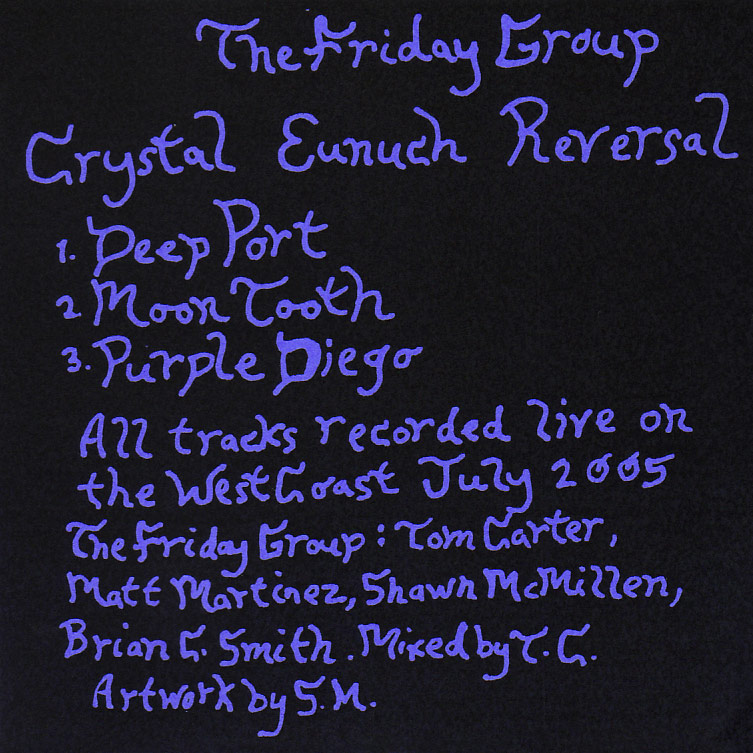 The Friday Group
Crystal Eunuch Reversal
1. Deep Port
2 Moon Tooth
3. Purple Diego
All tracks recorded live on
the West Coast July 2005
The Friday Group: Tom Carter,
Matt Martinez, Shawn McMillen,
Brian G. Smith. Mixed by T. C.
Artwork by S.M.